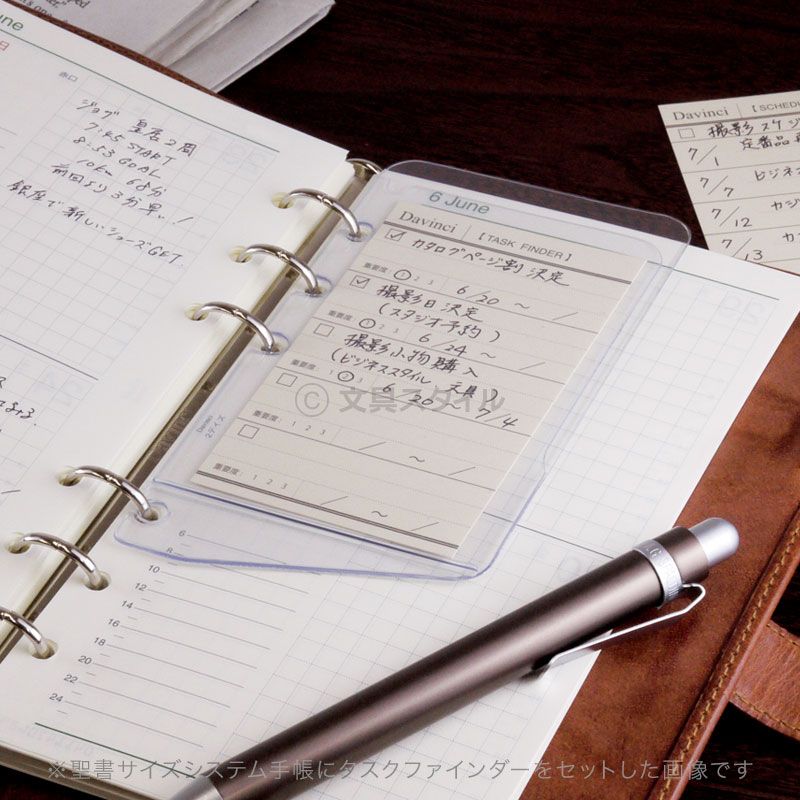 June
赤口
ジョグ 皇居2周
7:45 START
8:53 GOAL
10km 68分
前回より3分早い!
銀座で新しいシューズGET.
6 June
Davinci 【 TASK FINDER 】
カタログページ割 決定
重要度: 1 2 3 6/20 ～ /
撮影日決定
(スタジオ予約)
重要度: 1 2 3 6/24 ～ /
撮影小物購入
(ビジネススタイル 文具)
重要度: 1 2 3 6/20 ～ 7/4
重要度: 1 2 3 / ～ /
重要度: 1 2 3 / ～ /
Davinci
2デイズ
© 文具スタイル
6
10
12
14
16
18
20
22
24
Davinci 【 SCHED
撮影スケジ
7/1 定番品
7/7 ビジネス
7/12 カジ
7/13 カ
※聖書サイズシステム手帳にタスクファインダーをセットした画像です